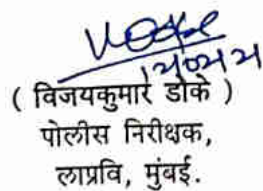 ( विजयकुमार डोके )
पोलीस निरीक्षक,
लाप्रवि, मुंबई.